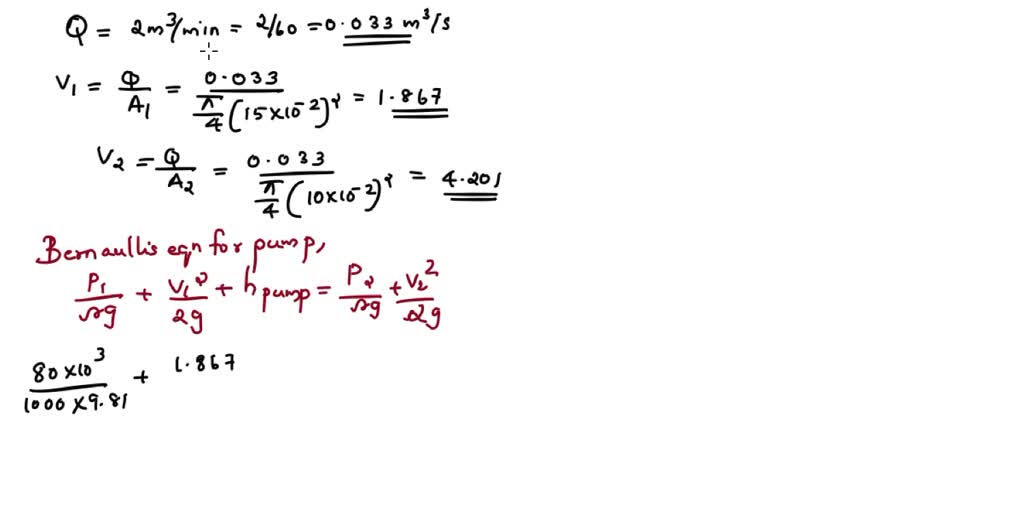 Q = 2m³/min = 2/60 = 0.033 m³/s
V₁ = Q/A₁ = 0.033 / (π/4 (15×10⁻²)²) = 1.867
V₂ = Q/A₂ = 0.033 / (π/4 (10×10⁻²)²) = 4.201
Bernaullis eqn for pump,
P₁/ρg + V₁²/2g + h pump = P₂/ρg + V₂²/2g
80×10³ / 1000×9.81 + 1.867